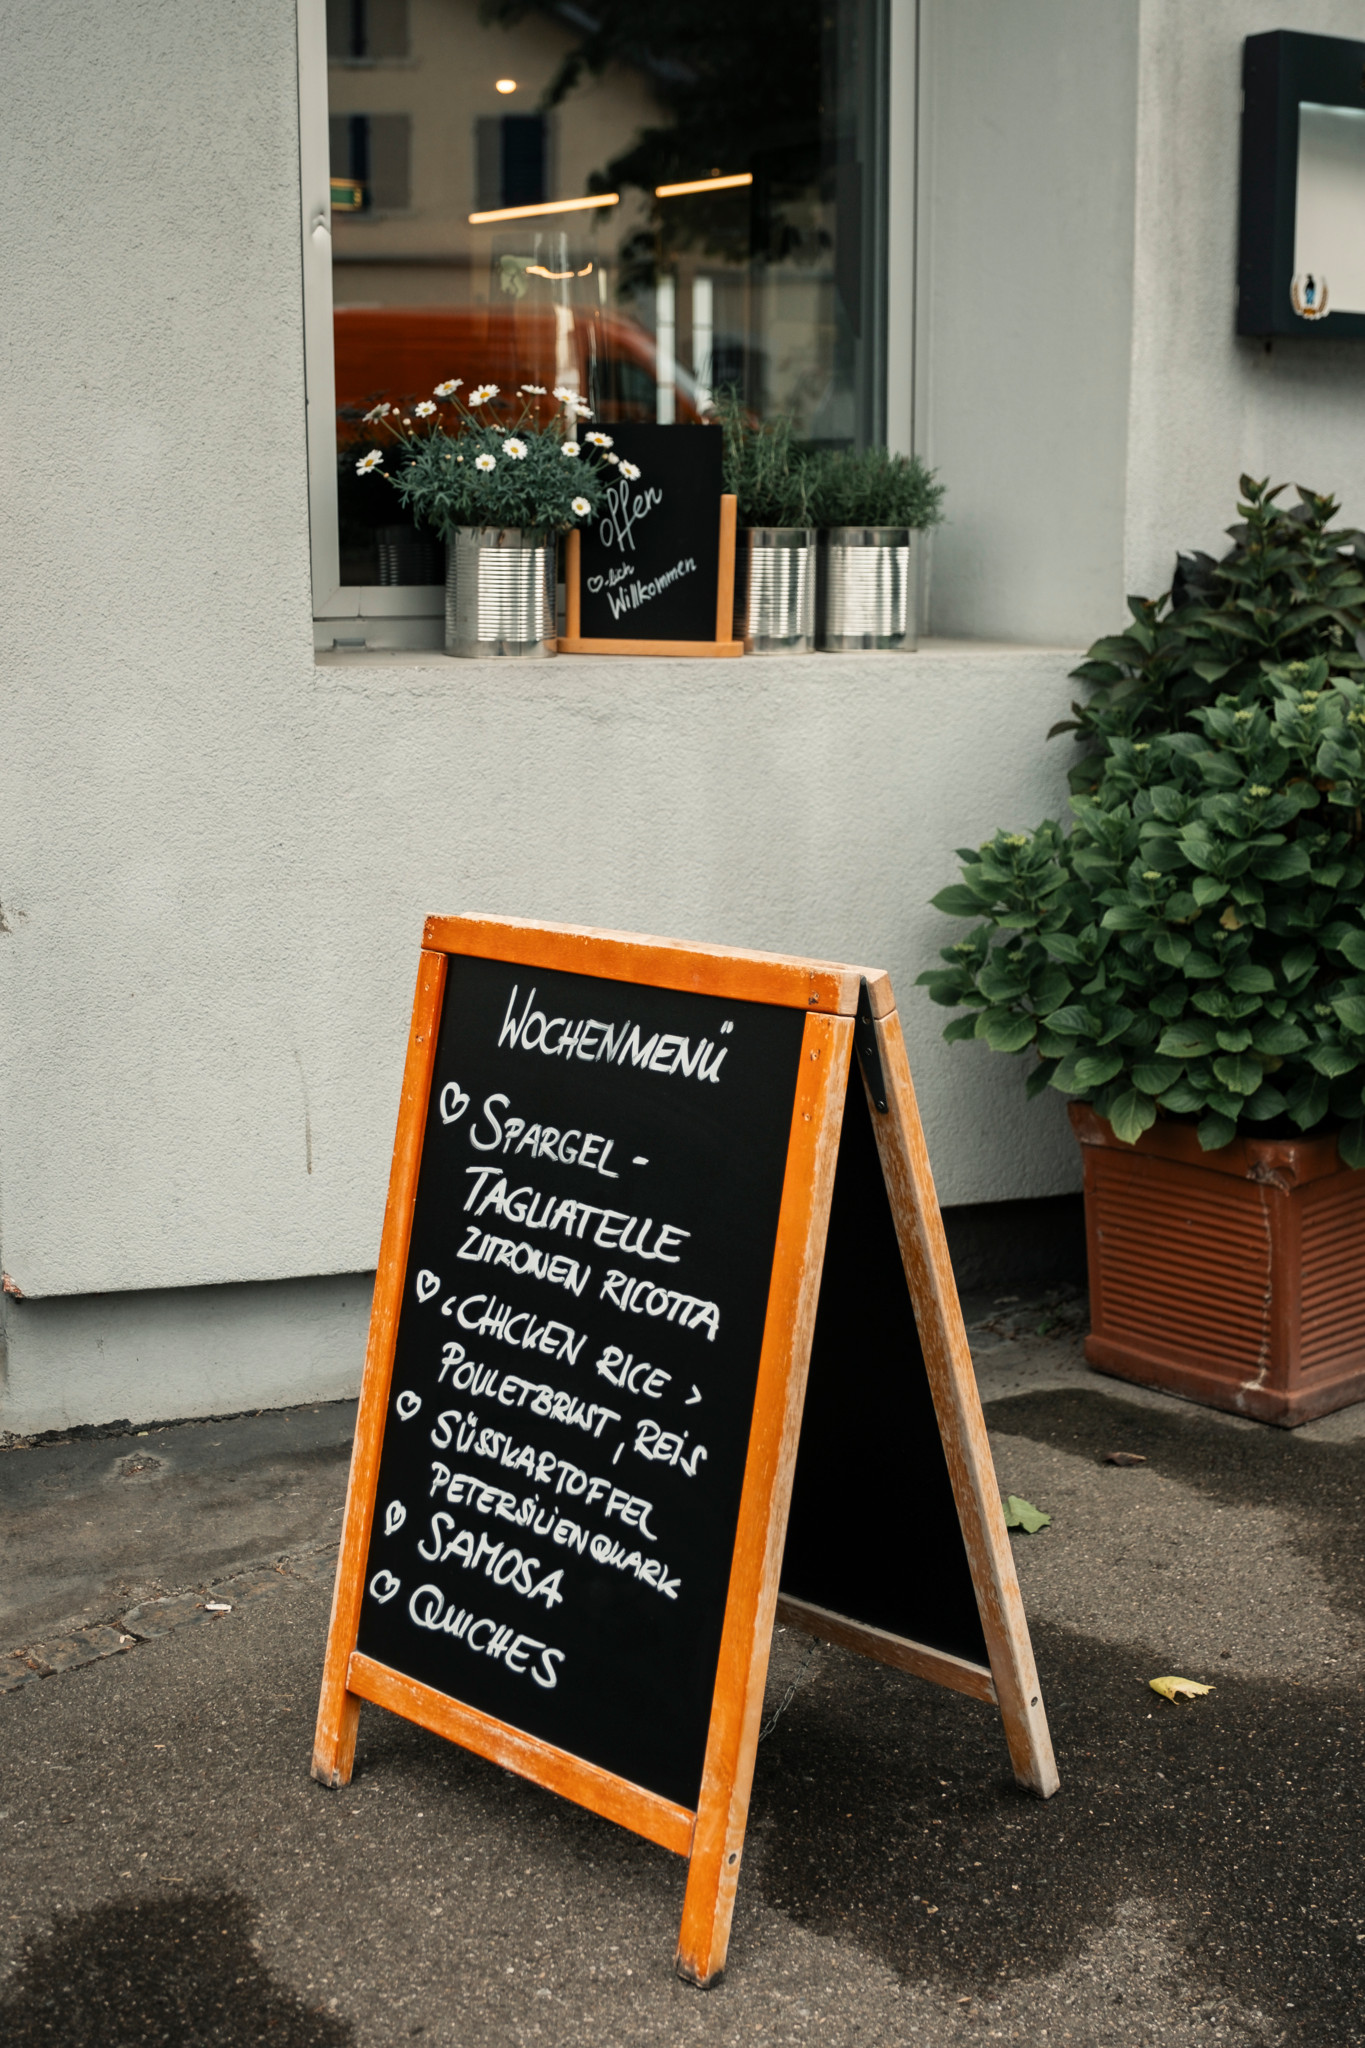 offen
♡-lich
Willkommen
WOCHENMENÜ
♡ SPARGEL-
TAGLIATELLE
ZITRONEN RICOTTA
♡ ‹CHICKEN RICE›
POULETBRUST, REIS
♡ SÜSSKARTOFFEL
PETERSILIENQUARK
♡ SAMOSA
♡ QUICHES